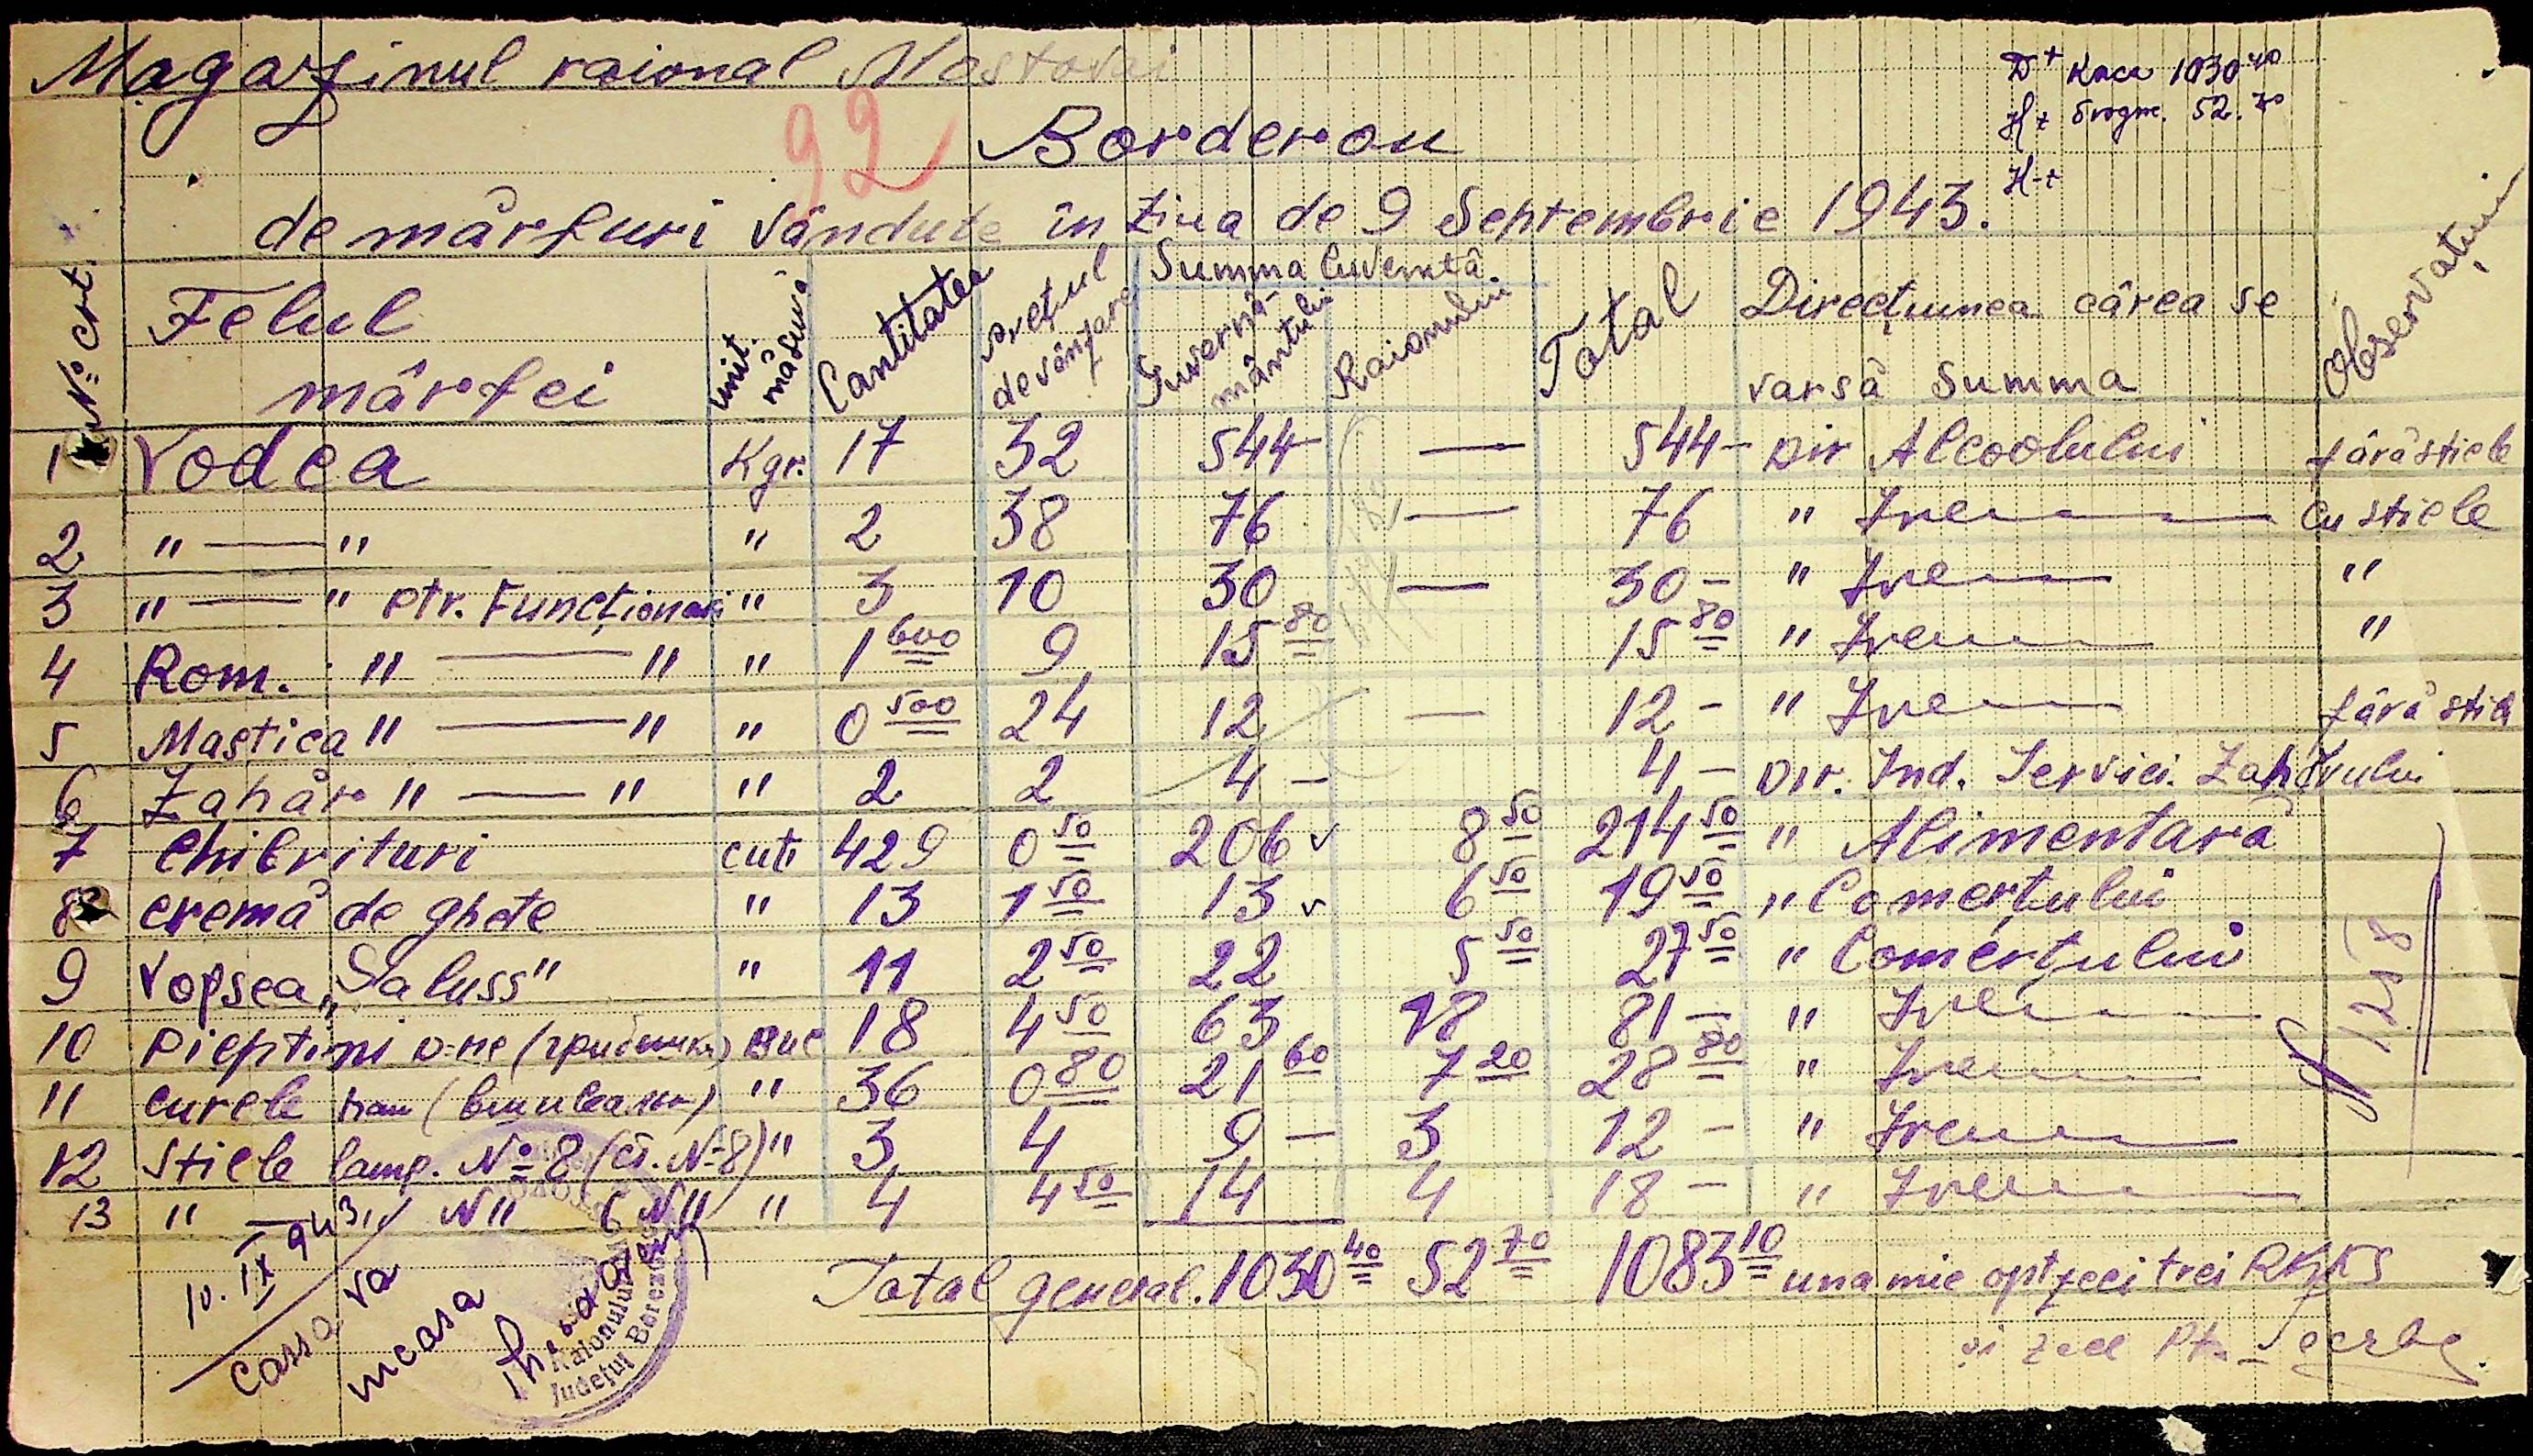 Magazinul raional Mostovoi
D+ Kaca 1030 40
H+ бюдж. 52.70
H-+
92
Borderou
de mărfuri vândute în ziua de 9 Septembrie 1943.
№ crt. Felul mărfei unit. măsură Cantitatea prețul de vânzare Summa cuvenită Guvernământului Raionului Total Direcțiunea cărea se varsă Summa Observațiuni
1 Vodca Kgr. 17 32 544- — 544- Dir Alcoolului fără sticle
2 " — " " 2 38 76 — 76 " Irem cu sticle
3 " — " ptr. Funcționari " 3 10 30 — 30- " Irem "
4 Rom. " — " " 1 600 9 15 80 15 80 " Irem "
5 Mastica " — " " 0 500 24 12 — 12- " Irem fără sticle
6 Zahăr " — " " 2 2 4- 4- Dir. Ind. Servici. Zahărului
7 Chibrituri cuti 429 0 50 206 v 8 50 214 50 " Alimentară
8 cremă de ghete " 13 1 50 13 v 6 50 19 50 " Comerțului
9 Vopsea „Saluss" " 11 2 50 22 5 50 27 50 " Comerțului
10 Piepteni Buc 18 4 50 63 18 81- " Irem
11 curele " 36 0 80 21 60 7 20 28 80 " Irem
12 Sticle lamp. № 8 (ct. №8) " 3 4 9- 3 12- " Irem
13 " — " N" 6 N" " 4 4 50 14 4 18- " Irem
1218
Total general. 1030 40 52 70 1083 10 una mie optzeci trei RKKS
și zece Pf.
10.IX 943
Cassa va
incasa
Raionului
Județul Berezovca